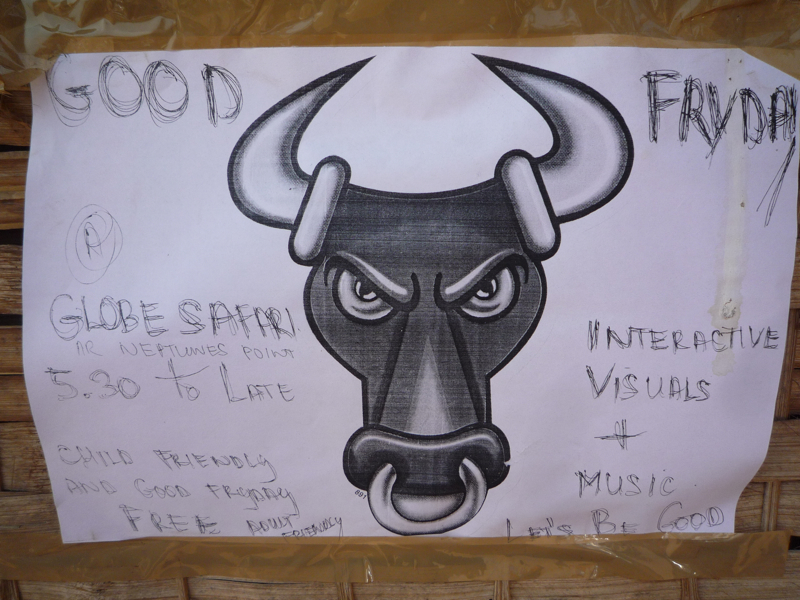 GOOD FRYDAY
@
GLOBE SAFARI
AR NEPTUNES POINT
5.30 to LATE
CHILD FRIENDLY
AND GOOD FRYDAY
FREE ADULT FRIENDLY
INTERACTIVE
VISUALS
+
MUSIC
LET'S BE GOOD